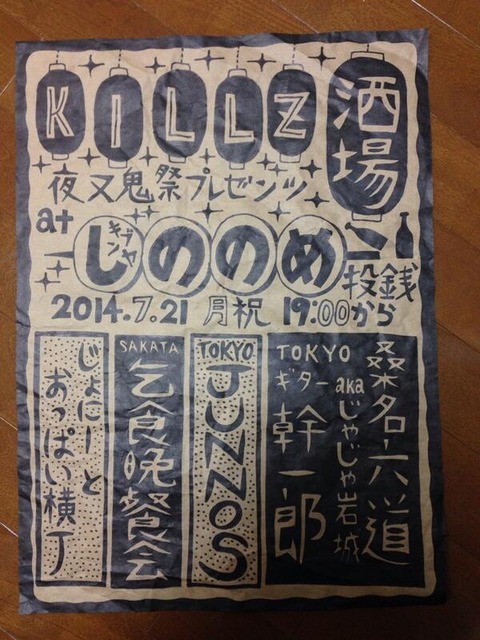 KILLZ
酒場
夜叉鬼祭プレゼンツ
at
じののめ
ギンブヤ
投銭
2014.7.21 月祝 19:00から
桑名六道
akaじゃじゃ岩城
TOKYO
ギター幹一郎
TOKYO
JUNNOS
SAKATA
乞食晩餐会
じょにーと
おっぱい横丁